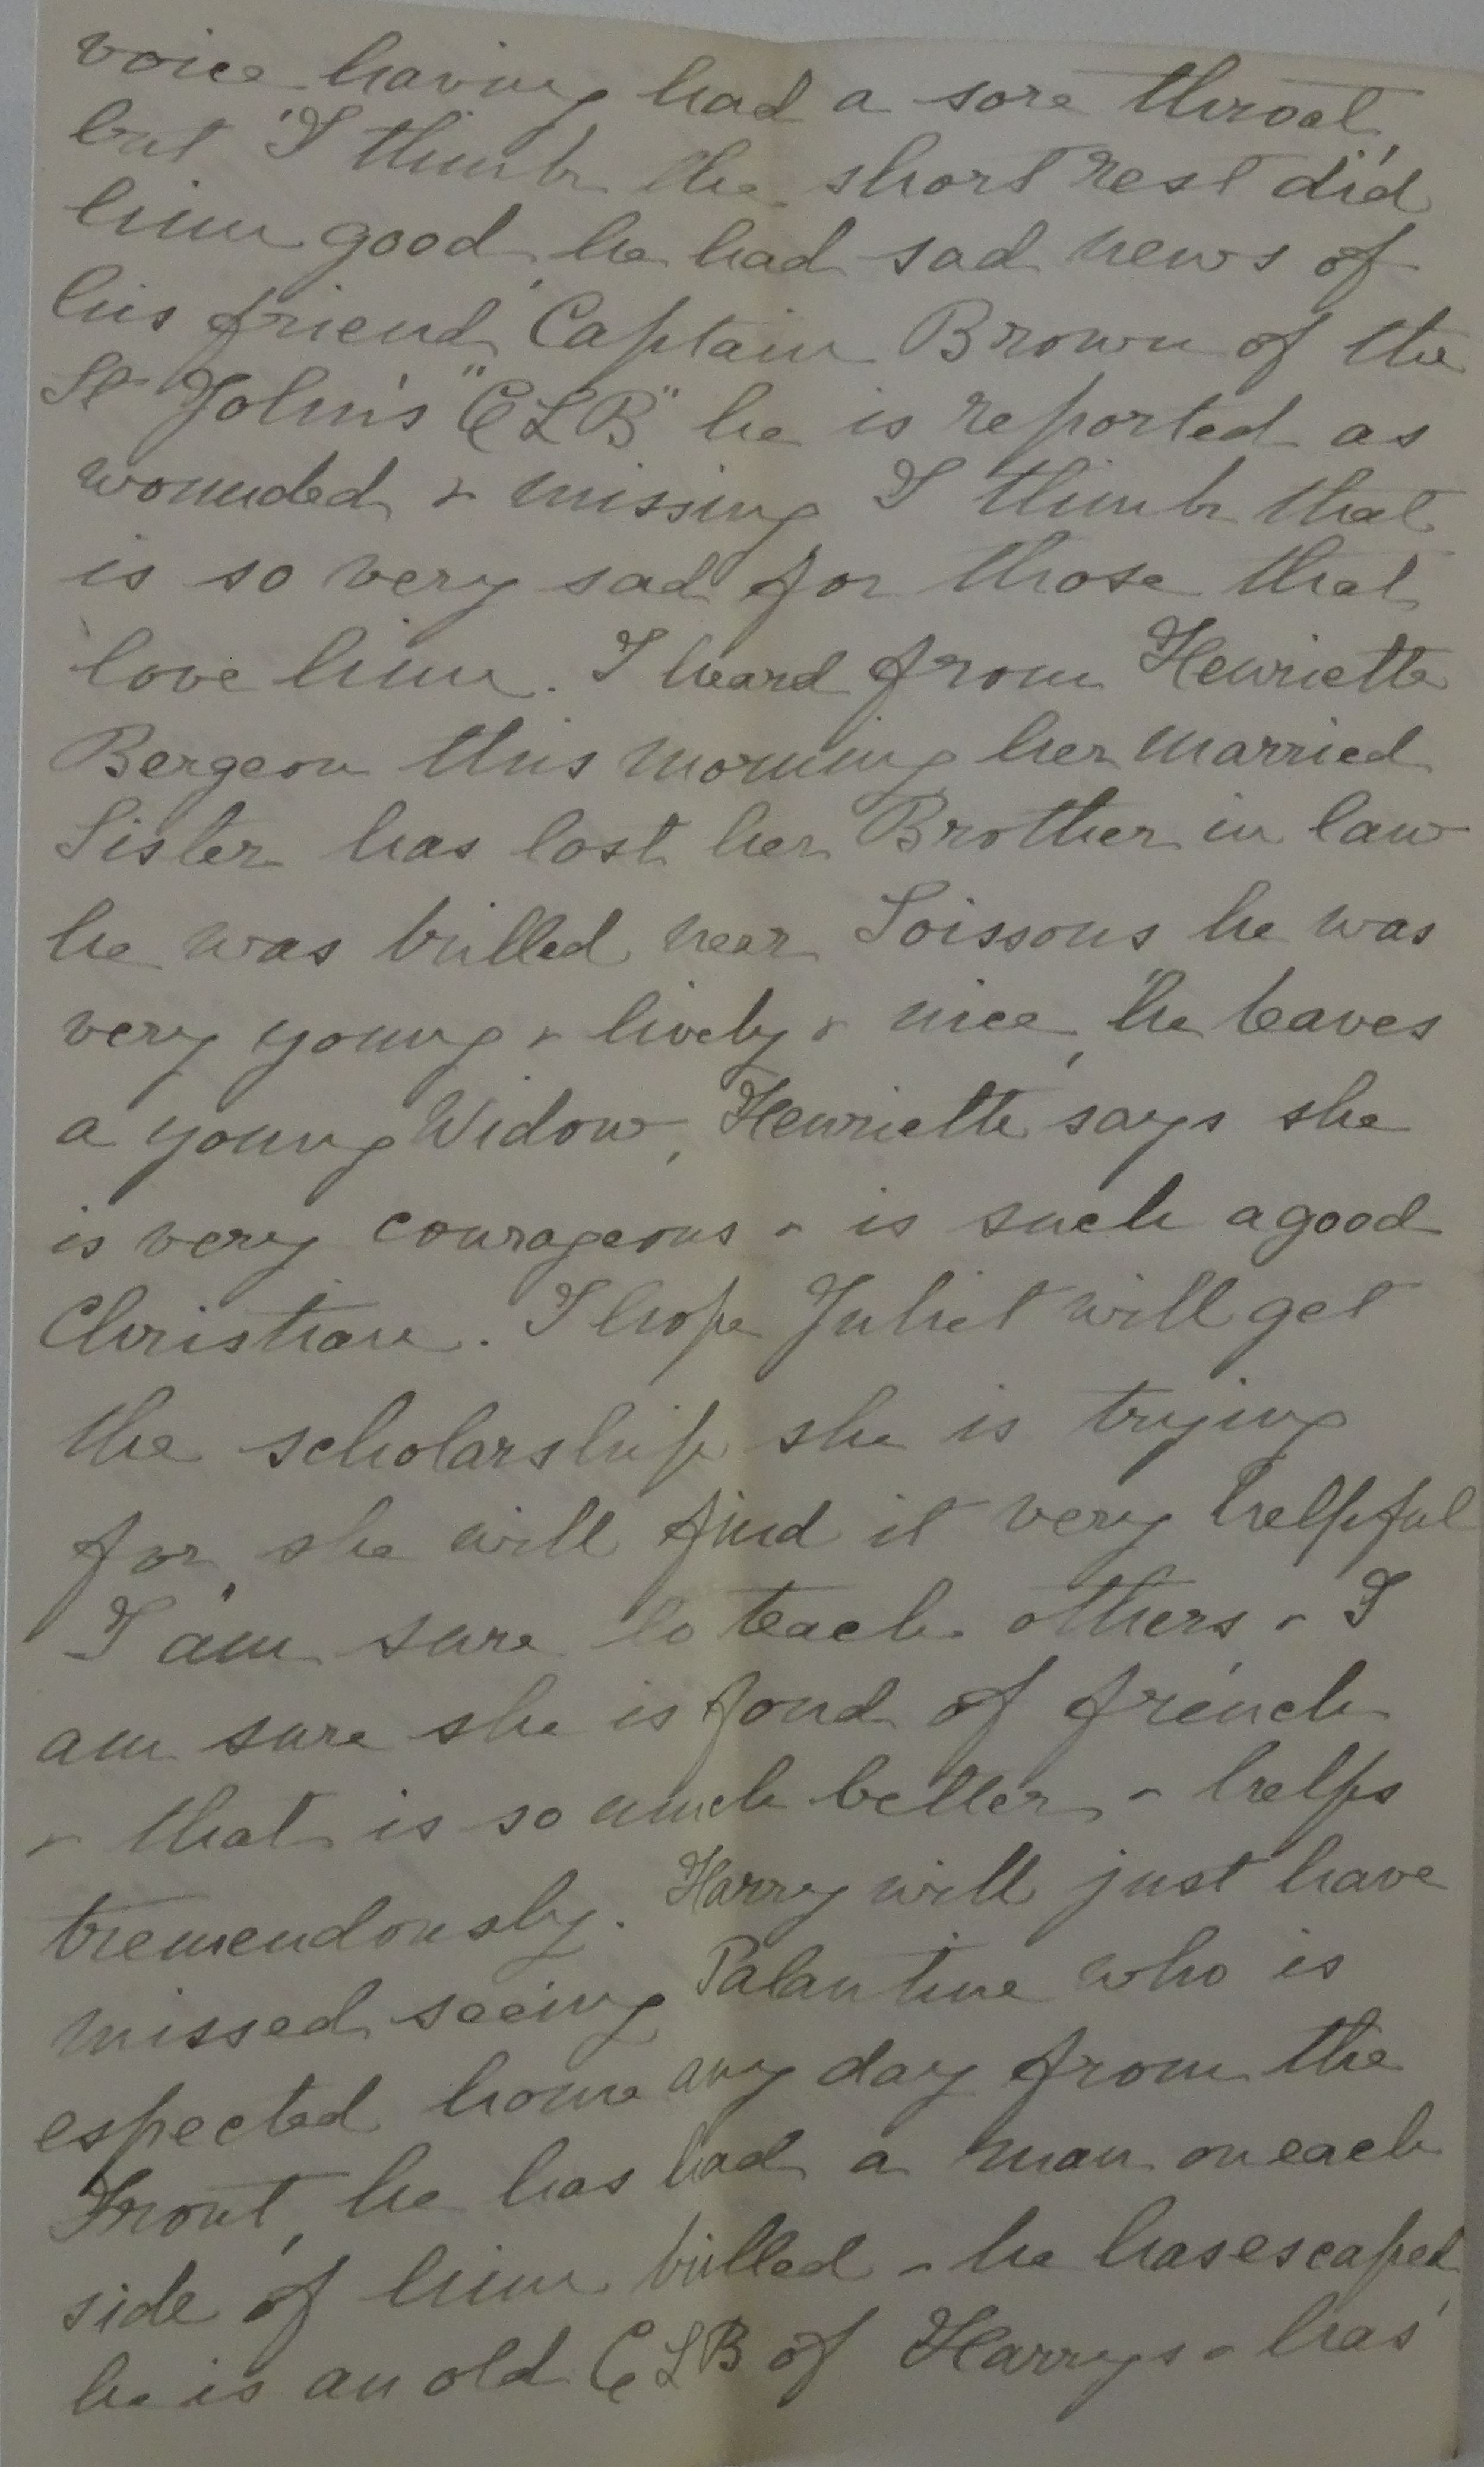 voice having had a sore throat,
but I think the short rest did
him good, he had sad news of
his friend Captain Brown of the
St John's "CLB" he is reported as
wounded & missing I think that
is so very sad for those that
love him. I heard from Henriette
Bergeon this morning her married
Sister has lost her Brother in law
he was killed near Soissons he was
very young & lively & nice, he leaves
a young Widow, Henriette says she
is very courageous & is such a good
Christian. I hope Juliet will get
the scholarship she is trying
for she will find it very helpful
I am sure to teach others, & I
am sure she is fond of french
& that is so much better & helps
tremendously. Harry will just have
missed seeing Palantine who is
espected home any day from the
Front, he has had a man on each
side of him killed & he has escaped,
he is an old CLB of Harrys & has